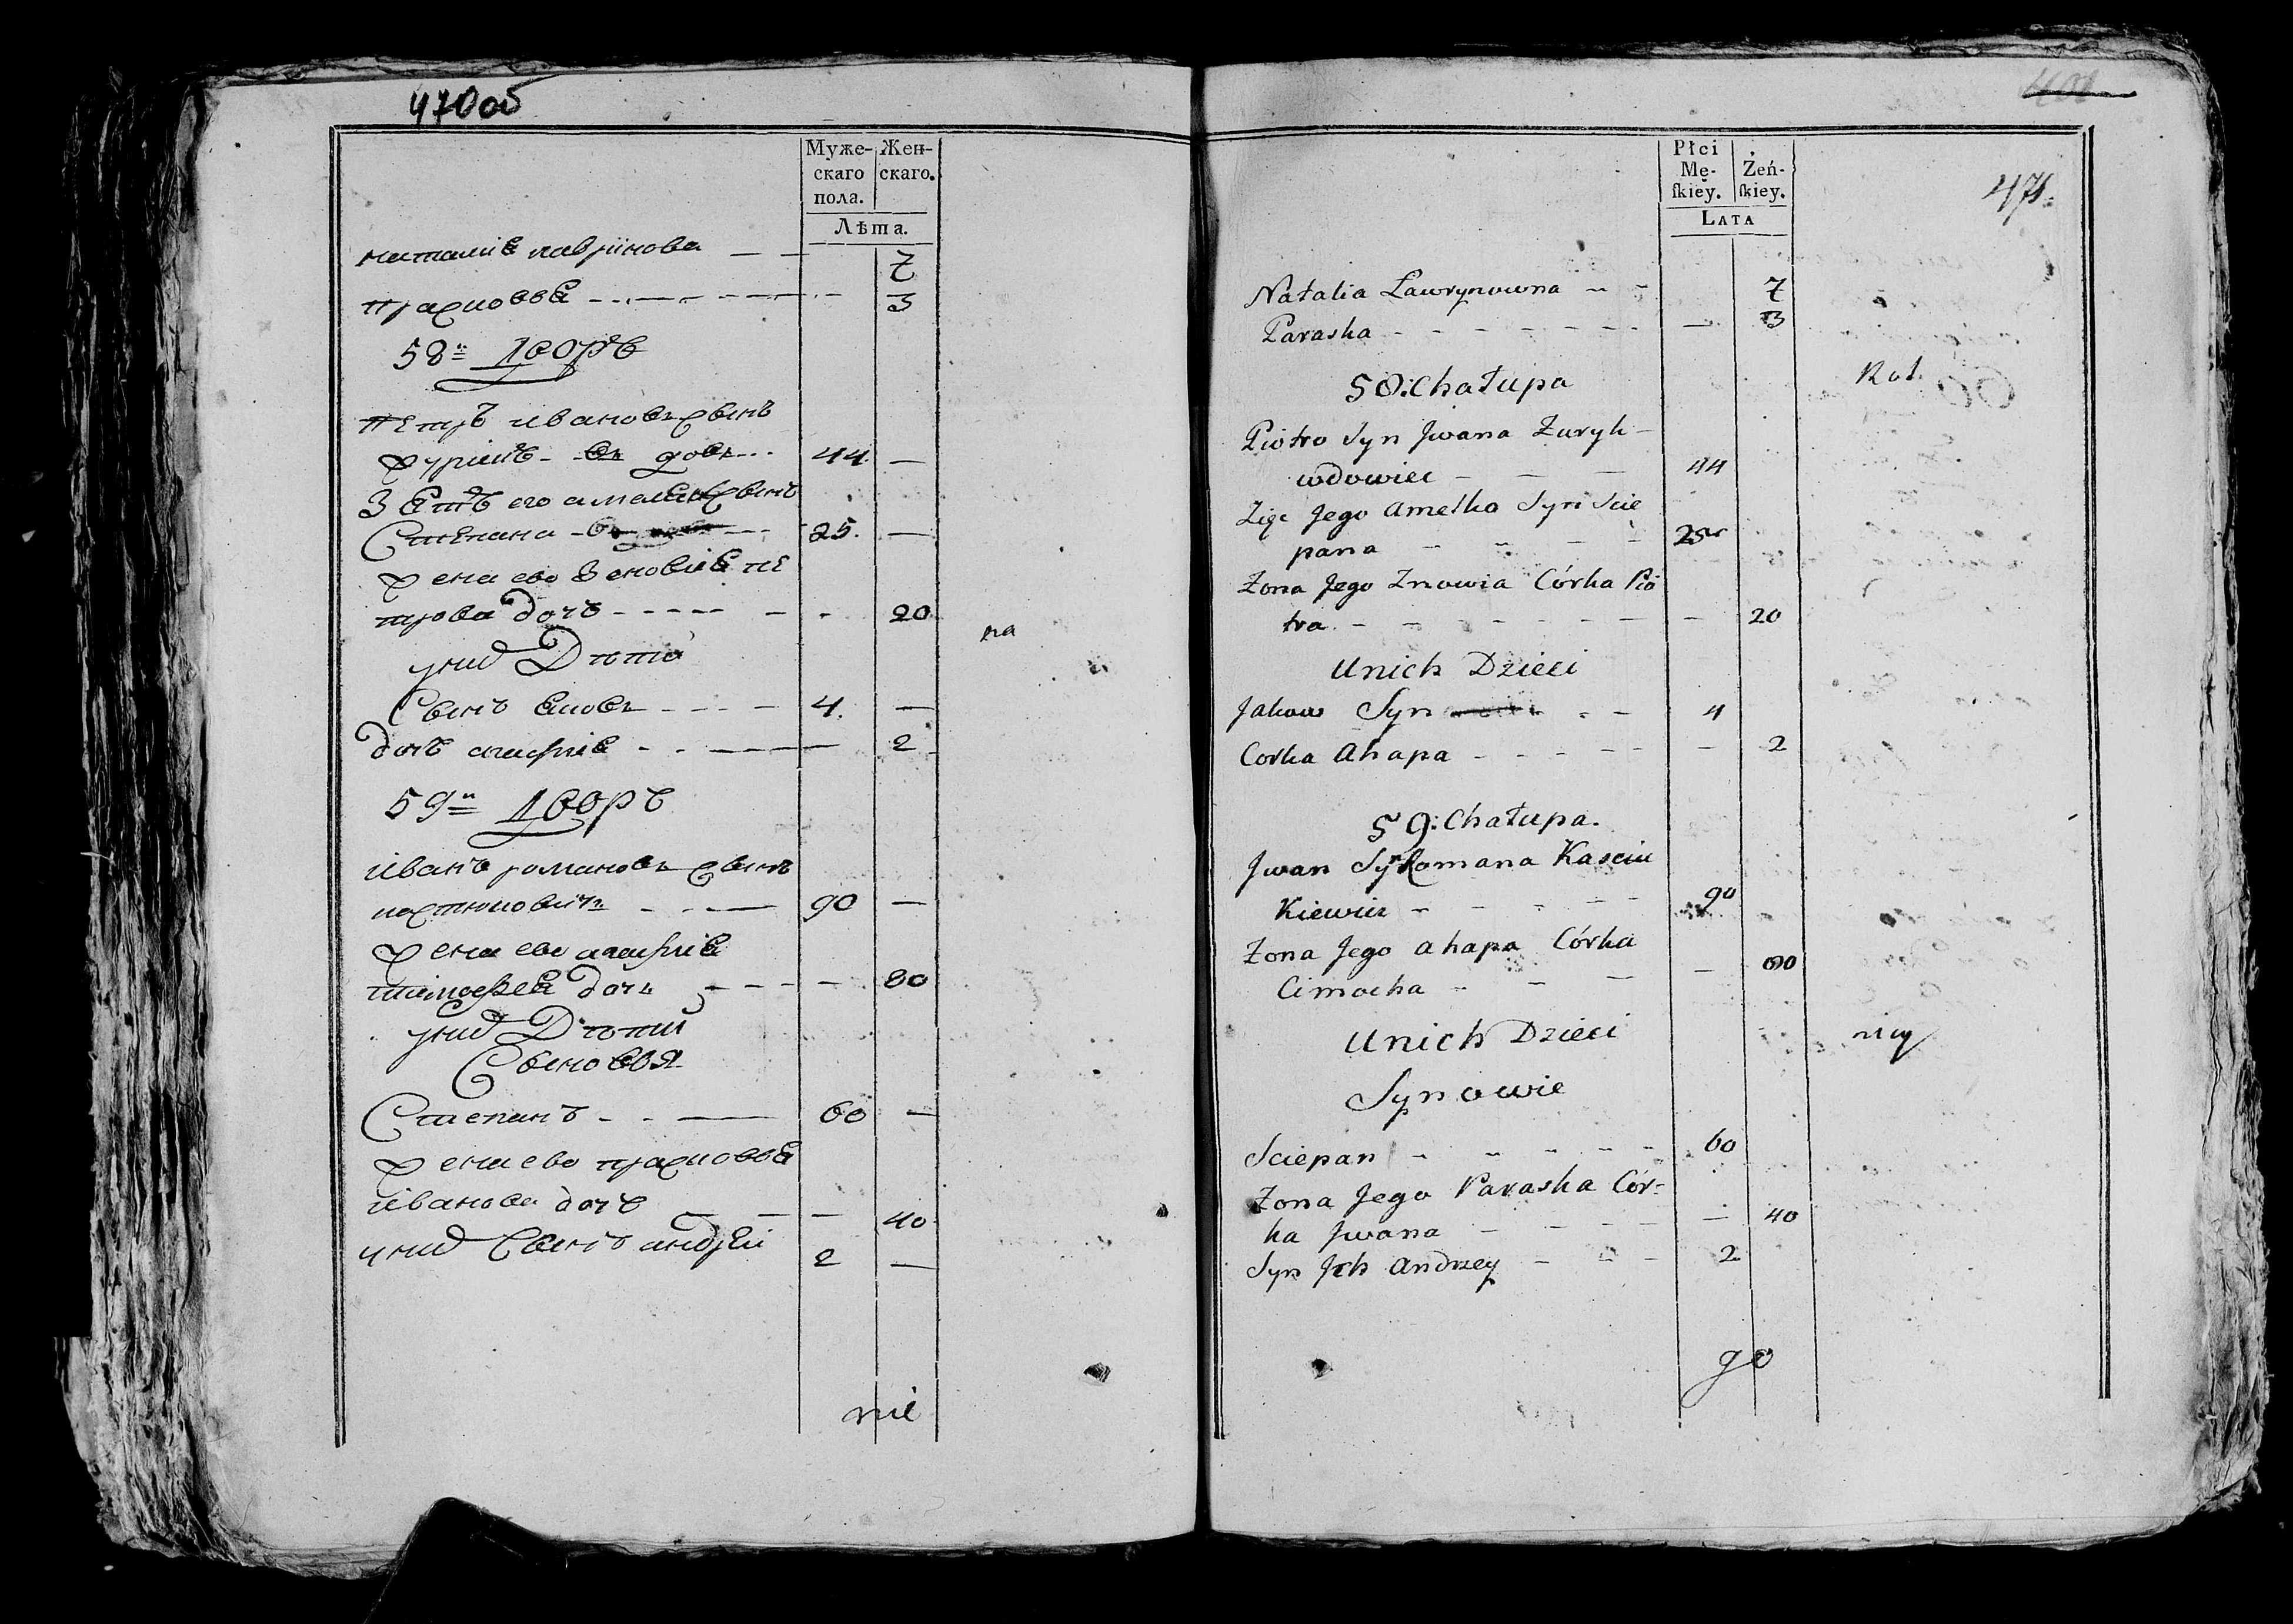 470об
Муже- Жен-
скаго скаго.
пола.
Лѣта.
наталиѣ лаврiнова — — 7
прасковѣ - - - - - - 3
58й дворъ
Петръ ивановъ сынъ
журикъ - вдовъ - 44. —
Зѣтъ его амелѣ сынъ
Степана - 25. —
жена ево Зеновиѣ пе
трова дочь - - - - - 20
у них Дѣти
Сынъ ѣковъ - - - 4. —
дочь агафиѣ - - - — 2
59й дворъ
иванъ романовъ сынъ
костюковичъ - - - 90 —
жена ево агафиѣ
тимофеѣ дочь - - - - 80
у них Дѣти
Сыновя
Степанъ - - — 60 —
жена ево прасковѣ
иванова дочь — — — 40
у них Сынъ андрей 2 —
na
nie
401
471.
Płci
Mę- Żeń-
ſkiey. ſkiey.
LATA
Natalia Ławrynowna - - 7
Paraska - - - - - - - — 3
58: Chałupa
Rot.
Piotro Syn Jwana Żuryk -
wdowiec - — — 44
Zięc Jego Amełko Syn Scie
pana - - - - 25
Zona Jego Znowia Córka Pio
tra. - - - - - - - — 20
Unich Dzieci
Jakow Syn - - 4
Corka Ahapa - - - - - — 2
59: Chałupa.
Jwan Syn Romana Kasciu
Kiewicz - - - - - 90
Zona Jego Ahapa Córka
Cimocha - - — — 80
Unich Dzieci
Synowie
Sciepan - - - - - 60
Zona Jego Paraska Cór-
ka Jwana - - - - — 40
Syn Jch Andrzey - - - 2
go